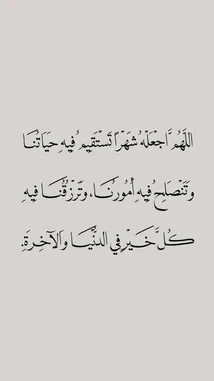 اللَّهُمَّ اجْعَلْهُ شَهْرًا تَسْتَقِيمُ فِيهِ حَيَاتُنَا
وَتَنْصَلِحُ فِيهِ أُمُورُنَا، وَتَرْزُقُنَا فِيهِ
كُلَّ خَيْرٍ فِي الدُّنْيَا وَالْآخِرَةِ.